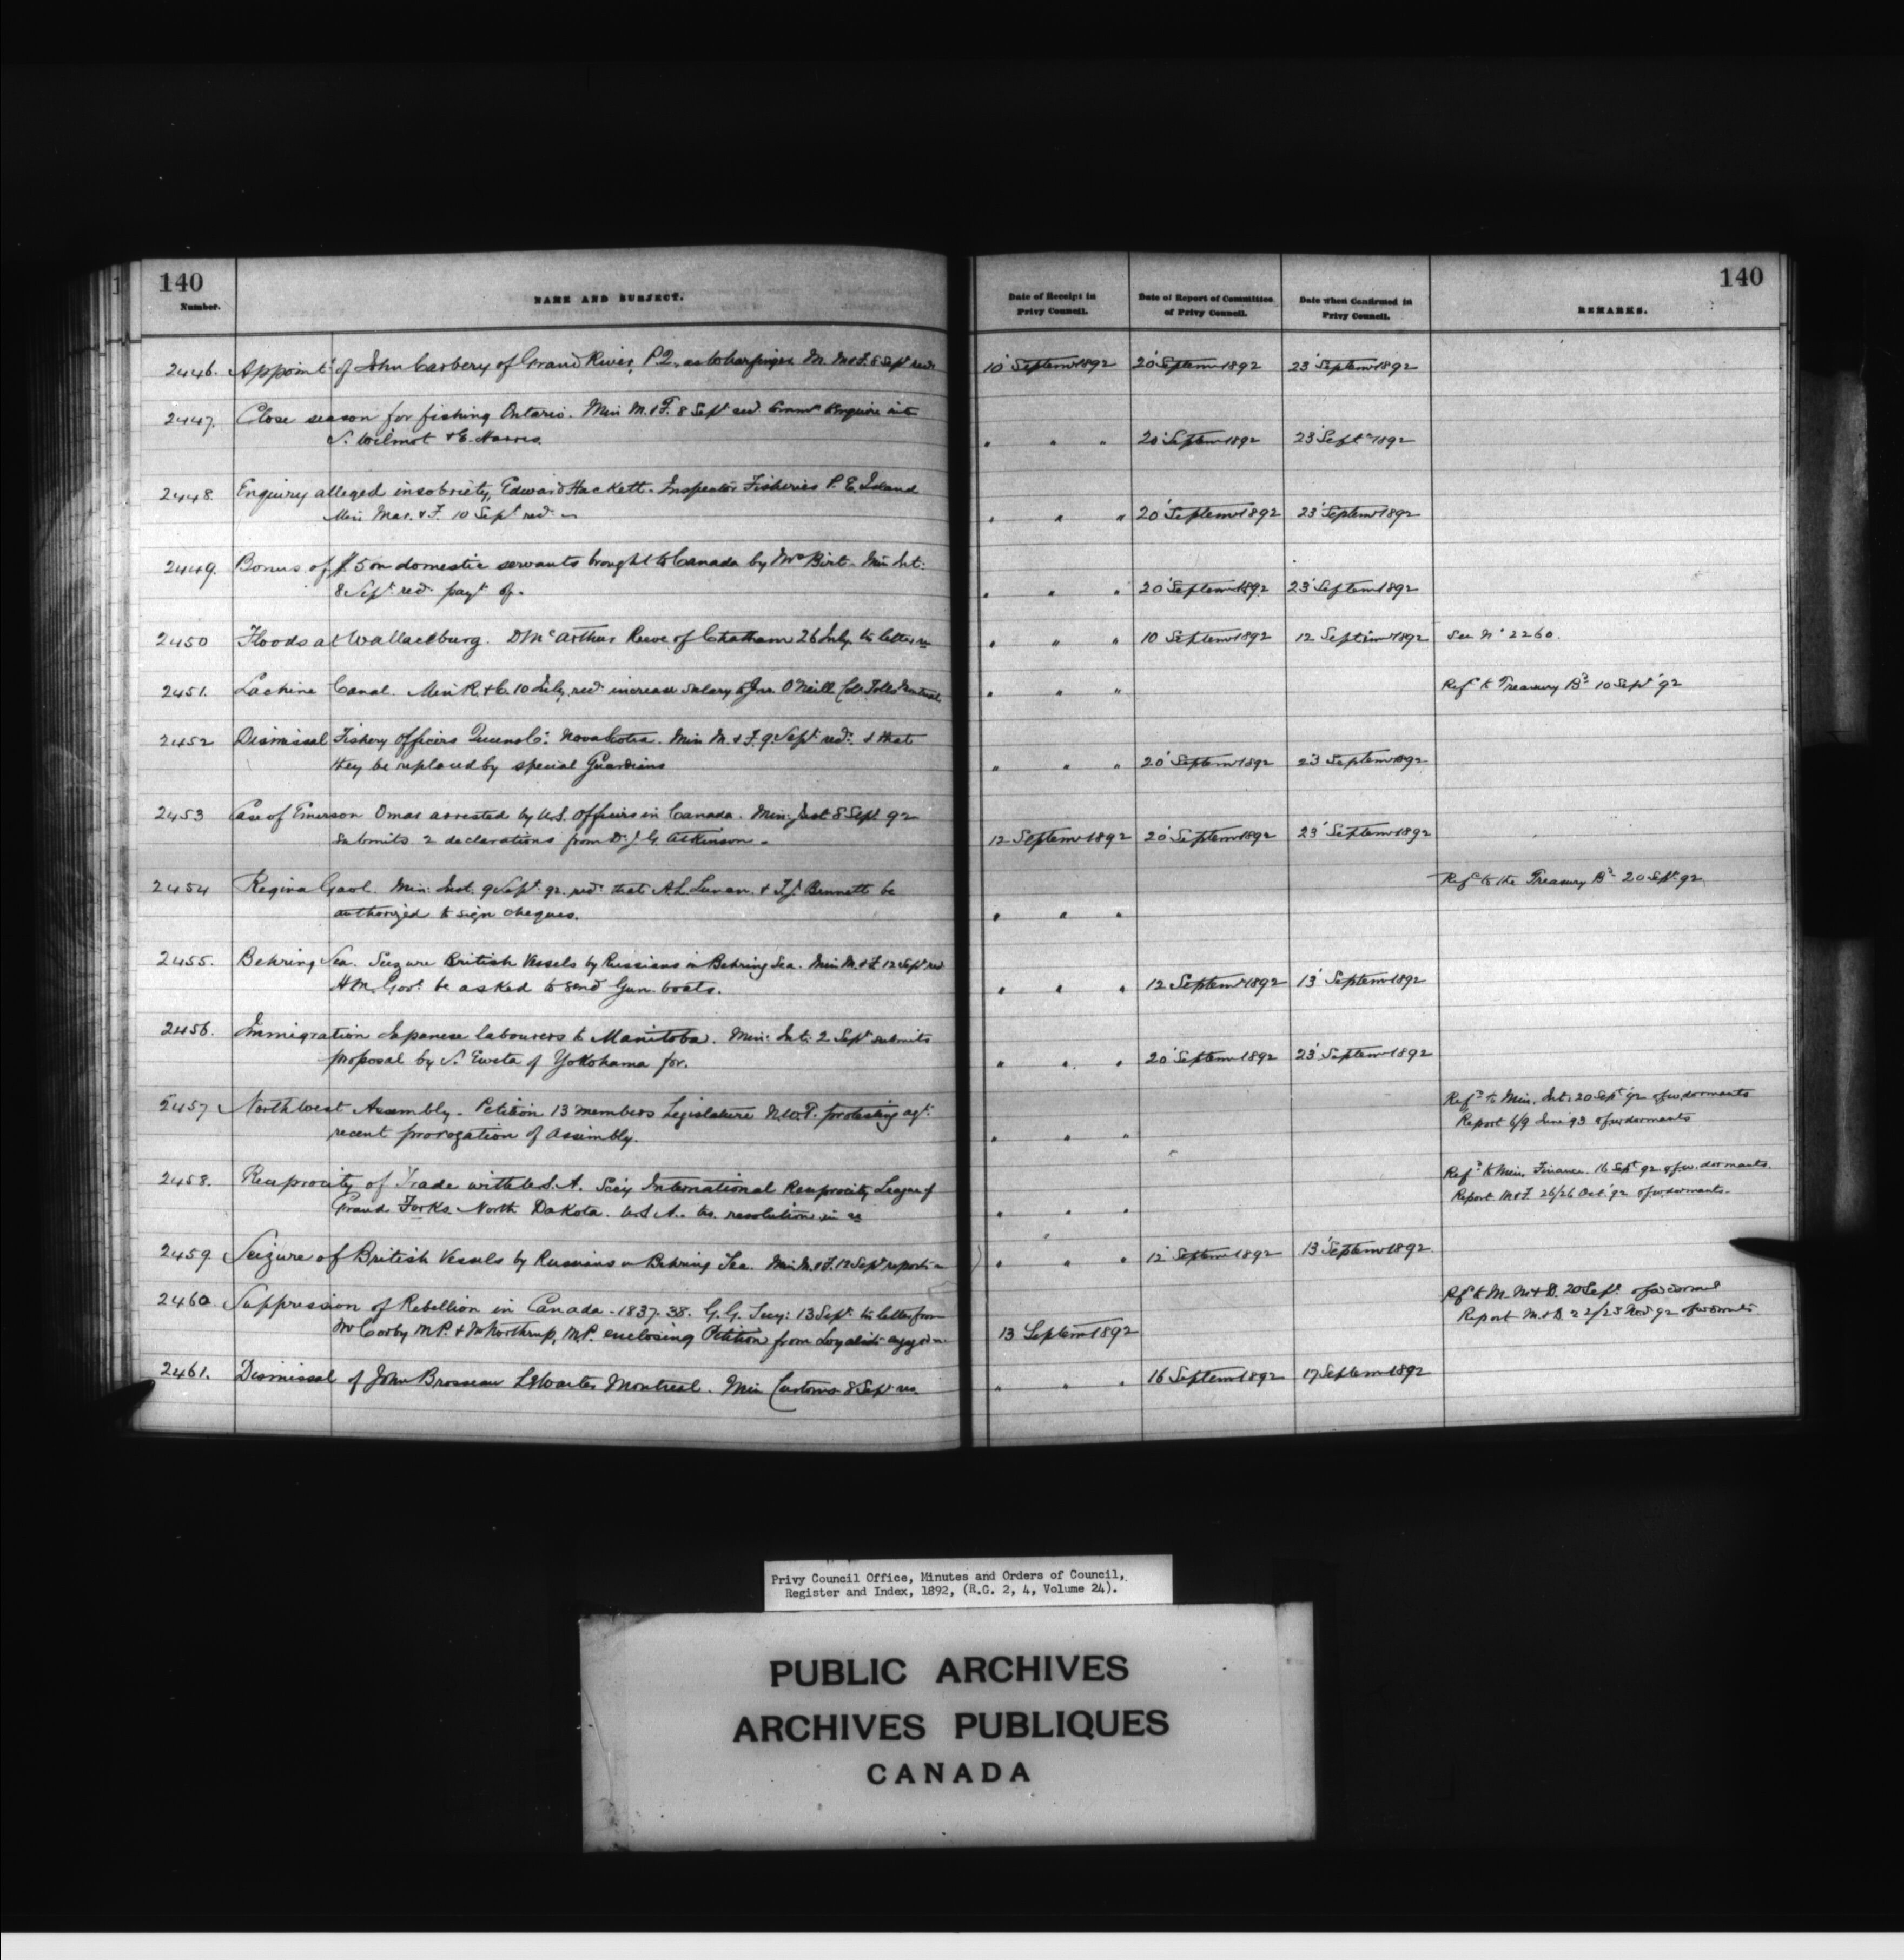 140
140
Number.
NAME AND SUBJECT.
Date of Receipt in Privy Council.
Date of Report of Committee of Privy Council.
Date when Confirmed in Privy Council.
REMARKS.
2446. Appointt of John Carbery of Grand River, P.Q. as Wharfinger M. M&F. 8 Sept recd 10 September 1892 20 September 1892 23 September 1892
2447. Close season for fishing Ontario. Min M.&F. 8 Sept recd. Commn Enquire into
S. Wilmot & E. Harris. " " " 20 September 1892 23 Septr 1892
2448. Enquiry alleged insobriety, Edward Hackett. Inspector Fisheries P. E. Island
Min Mar. & F. 10 Sept recd " " " 20 September 1892 23 September 1892
2449. Bonus of $5 on domestic servants brought to Canada by Mrs Birt. Min Int:
8 Sept recd payt of. " " " 20 September 1892 23 September 1892
2450 Floods at Wallaceburg. D McArthur Reeve of Chatham 26 July to letter re " " " 10 September 1892 12 September 1892 See No 2260.
2451. Lachine Canal. Min R. & C. 10 July, recd increase salary to Jno. O'Neill Col. Tolls Montreal " " " Refd to Treasury Bd 10 Sept '92
2452 Dismissal Fishery Officers Queens Co: Nova Scotia. Min M. & F. 9 Sept recd & that
they be replaced by special Guardians " " " 20 September 1892 23 September 1892
2453 Case of Emerson Omar arrested by U.S. Officers in Canada. Min: Just 8 Sept 92
submits 2 declarations from Dr. J. G. Atkinson. 12 September 1892 20 September 1892 23 September 1892
2454 Regina Gaol. Min: Just. 9 Sept. 92. recd that A.L. Lunan & T.J. Bennett be Refd to the Treasury Bd 20 Sept 92
authorized to sign cheques. " " "
2455. Behring Sea. Seizure British Vessels by Russians in Behring Sea. Min M. & F. 12 Sept recd
H.M. Govt be asked to send Gun-boats. " " " 12 September 1892 13 September 1892
2456. Immigration Japanese labourers to Manitoba. Min: Int: 2 Sept submits
proposal by S. Eweta of Yokohama for. " " " 20 September 1892 23 September 1892
2457 North West Assembly. Petition 13 members Legislature N.W.T. protesting agt: Refd to Min. Int: 20 Sept '92 ofw. dormants
recent prorogation of Assembly. " " " Report 6/9 June 93 ofw dormants
2458. Reciprocity of Trade with U.S.A. Secy International Reciprocity League of Refd to Min. Finance. 16 Sept 92 ofw. dormants.
Grand Forks North Dakota. U.S.A. to. resolution in re " " " Report M&F. 26/26 Oct. 92 ofw dormants.
2459 Seizure of British Vessels by Russians in Behring Sea. Min M. & F. 12 Sept reports " " " 12 September 1892 13 September 1892
2460 Suppression of Rebellion in Canada - 1837-38. G.G. Secy: 13 Sept. to letter from Refd to M. M & D. 20 Sept.
Mr Corby M.P. & W Northrup, M.P. enclosing Petition from Loyalists engaged in 13 September 1892 Report M & D 22/23 Nov 92
2461. Dismissal of John Brosseau Montreal. Min Customs 8 Sept re " " " 16 September 1892 17 September 1892
Privy Council Office, Minutes and Orders of Council,
Register and Index, 1892, (R.G. 2, 4, Volume 24).
PUBLIC ARCHIVES
ARCHIVES PUBLIQUES
CANADA